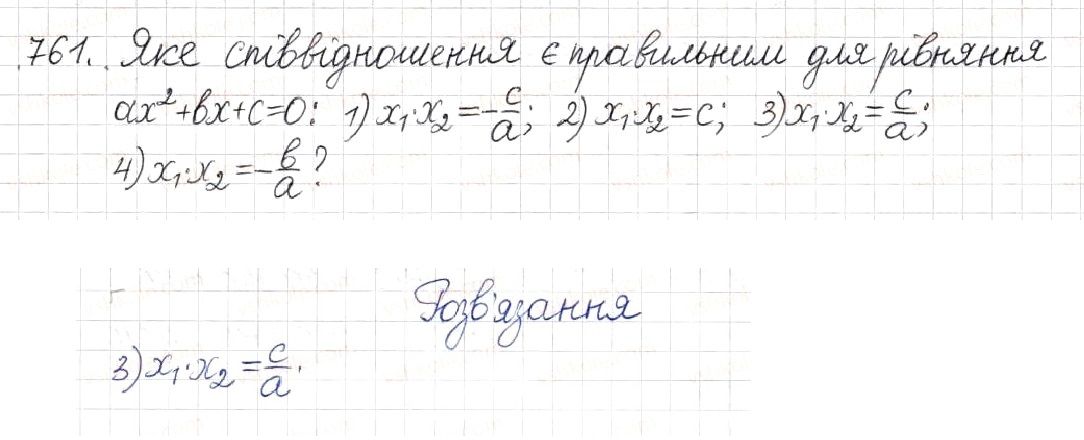 761. Яке співвідношення є правильним для рівняння
ax²+bx+c=0: 1) x₁·x₂=-c/a; 2) x₁·x₂=c; 3) x₁·x₂=c/a;
4) x₁·x₂=-b/a?
Розв'язання
3) x₁·x₂=c/a.